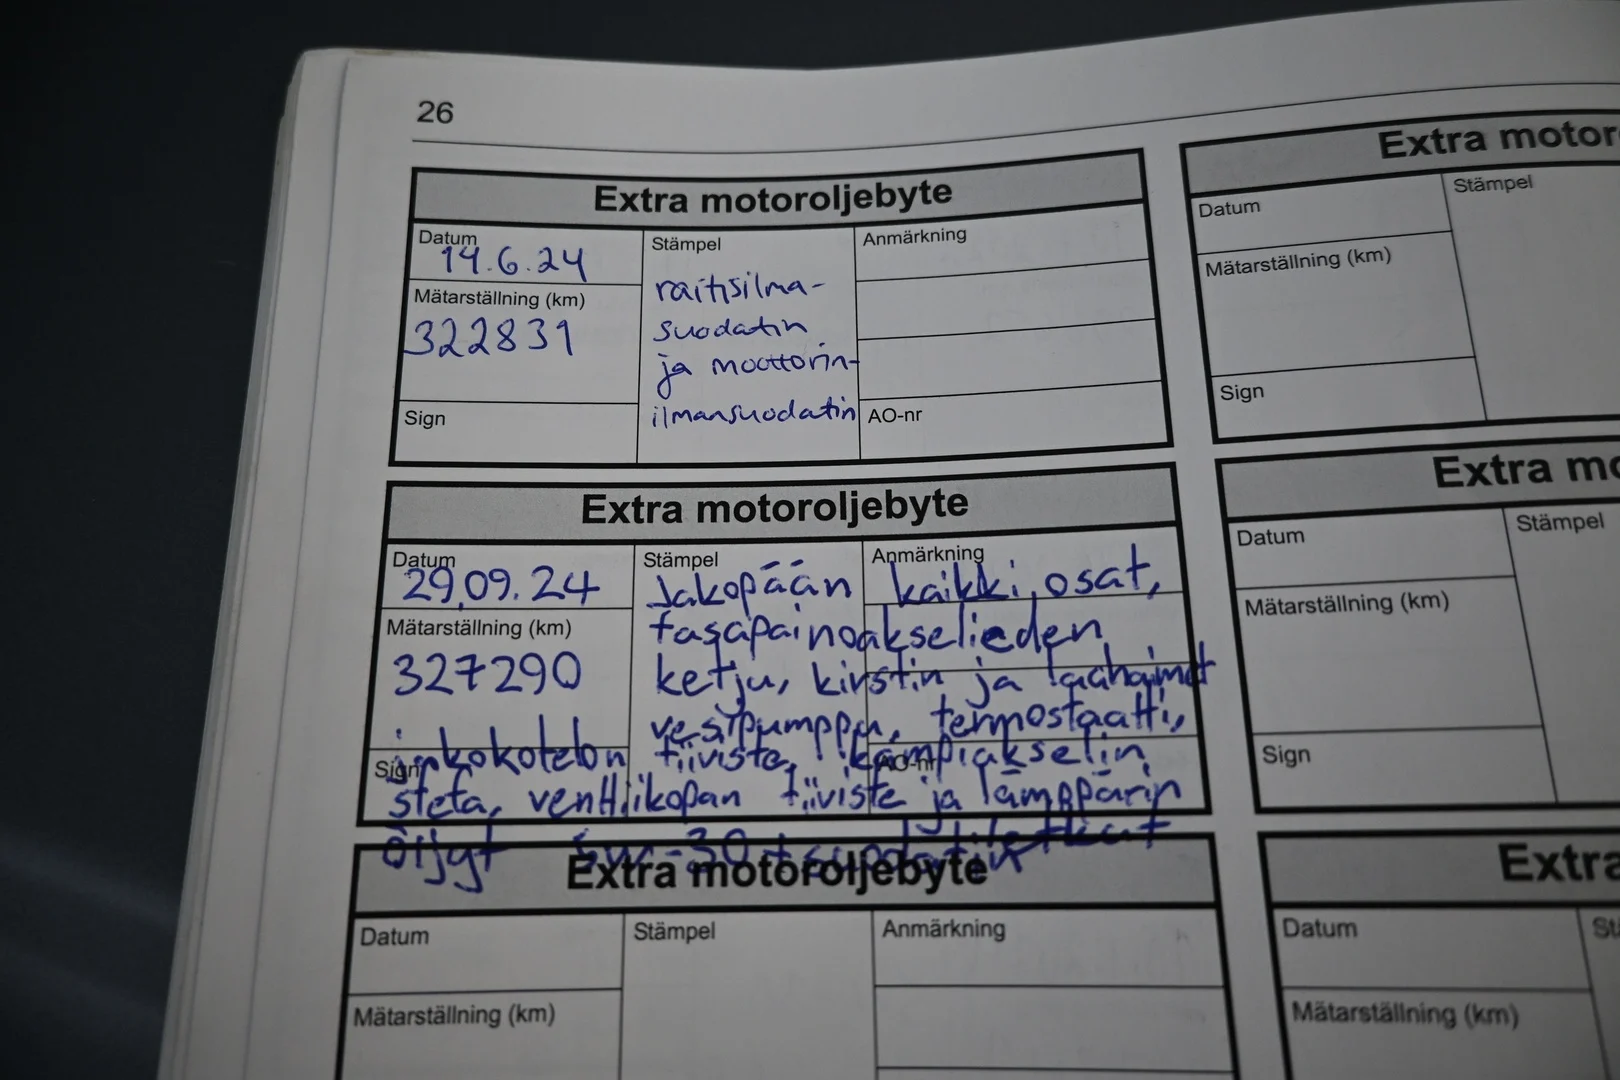 26
Extra motoroljebyte
Datum
14.6.24
Mätarställning (km)
322831
Sign
Stämpel
raitisilma-
suodatin
ja moottorin-
ilmansuodatin
Anmärkning
AO-nr
Extra motor
Datum
Stämpel
Mätarställning (km)
Sign
Extra motoroljebyte
Datum
29.09.24
Mätarställning (km)
327290
Sign
Stämpel
Anmärkning
AO-nr
Jakopään kaikki osat,
tasapainoakselieden
ketju, kirstin ja laahaimet
vesipumppu, termostaatti,
jakokotelon tiiviste, kampiakselin
steta, venttiilikopan tiiviste ja lämppärin
öljyt 5w-30 + suodatin letkut
Extra mo
Datum
Stämpel
Mätarställning (km)
Sign
Extra motoroljebyte
Datum
Stämpel
Anmärkning
Mätarställning (km)
Extra
Datum
St
Mätarställning (km)